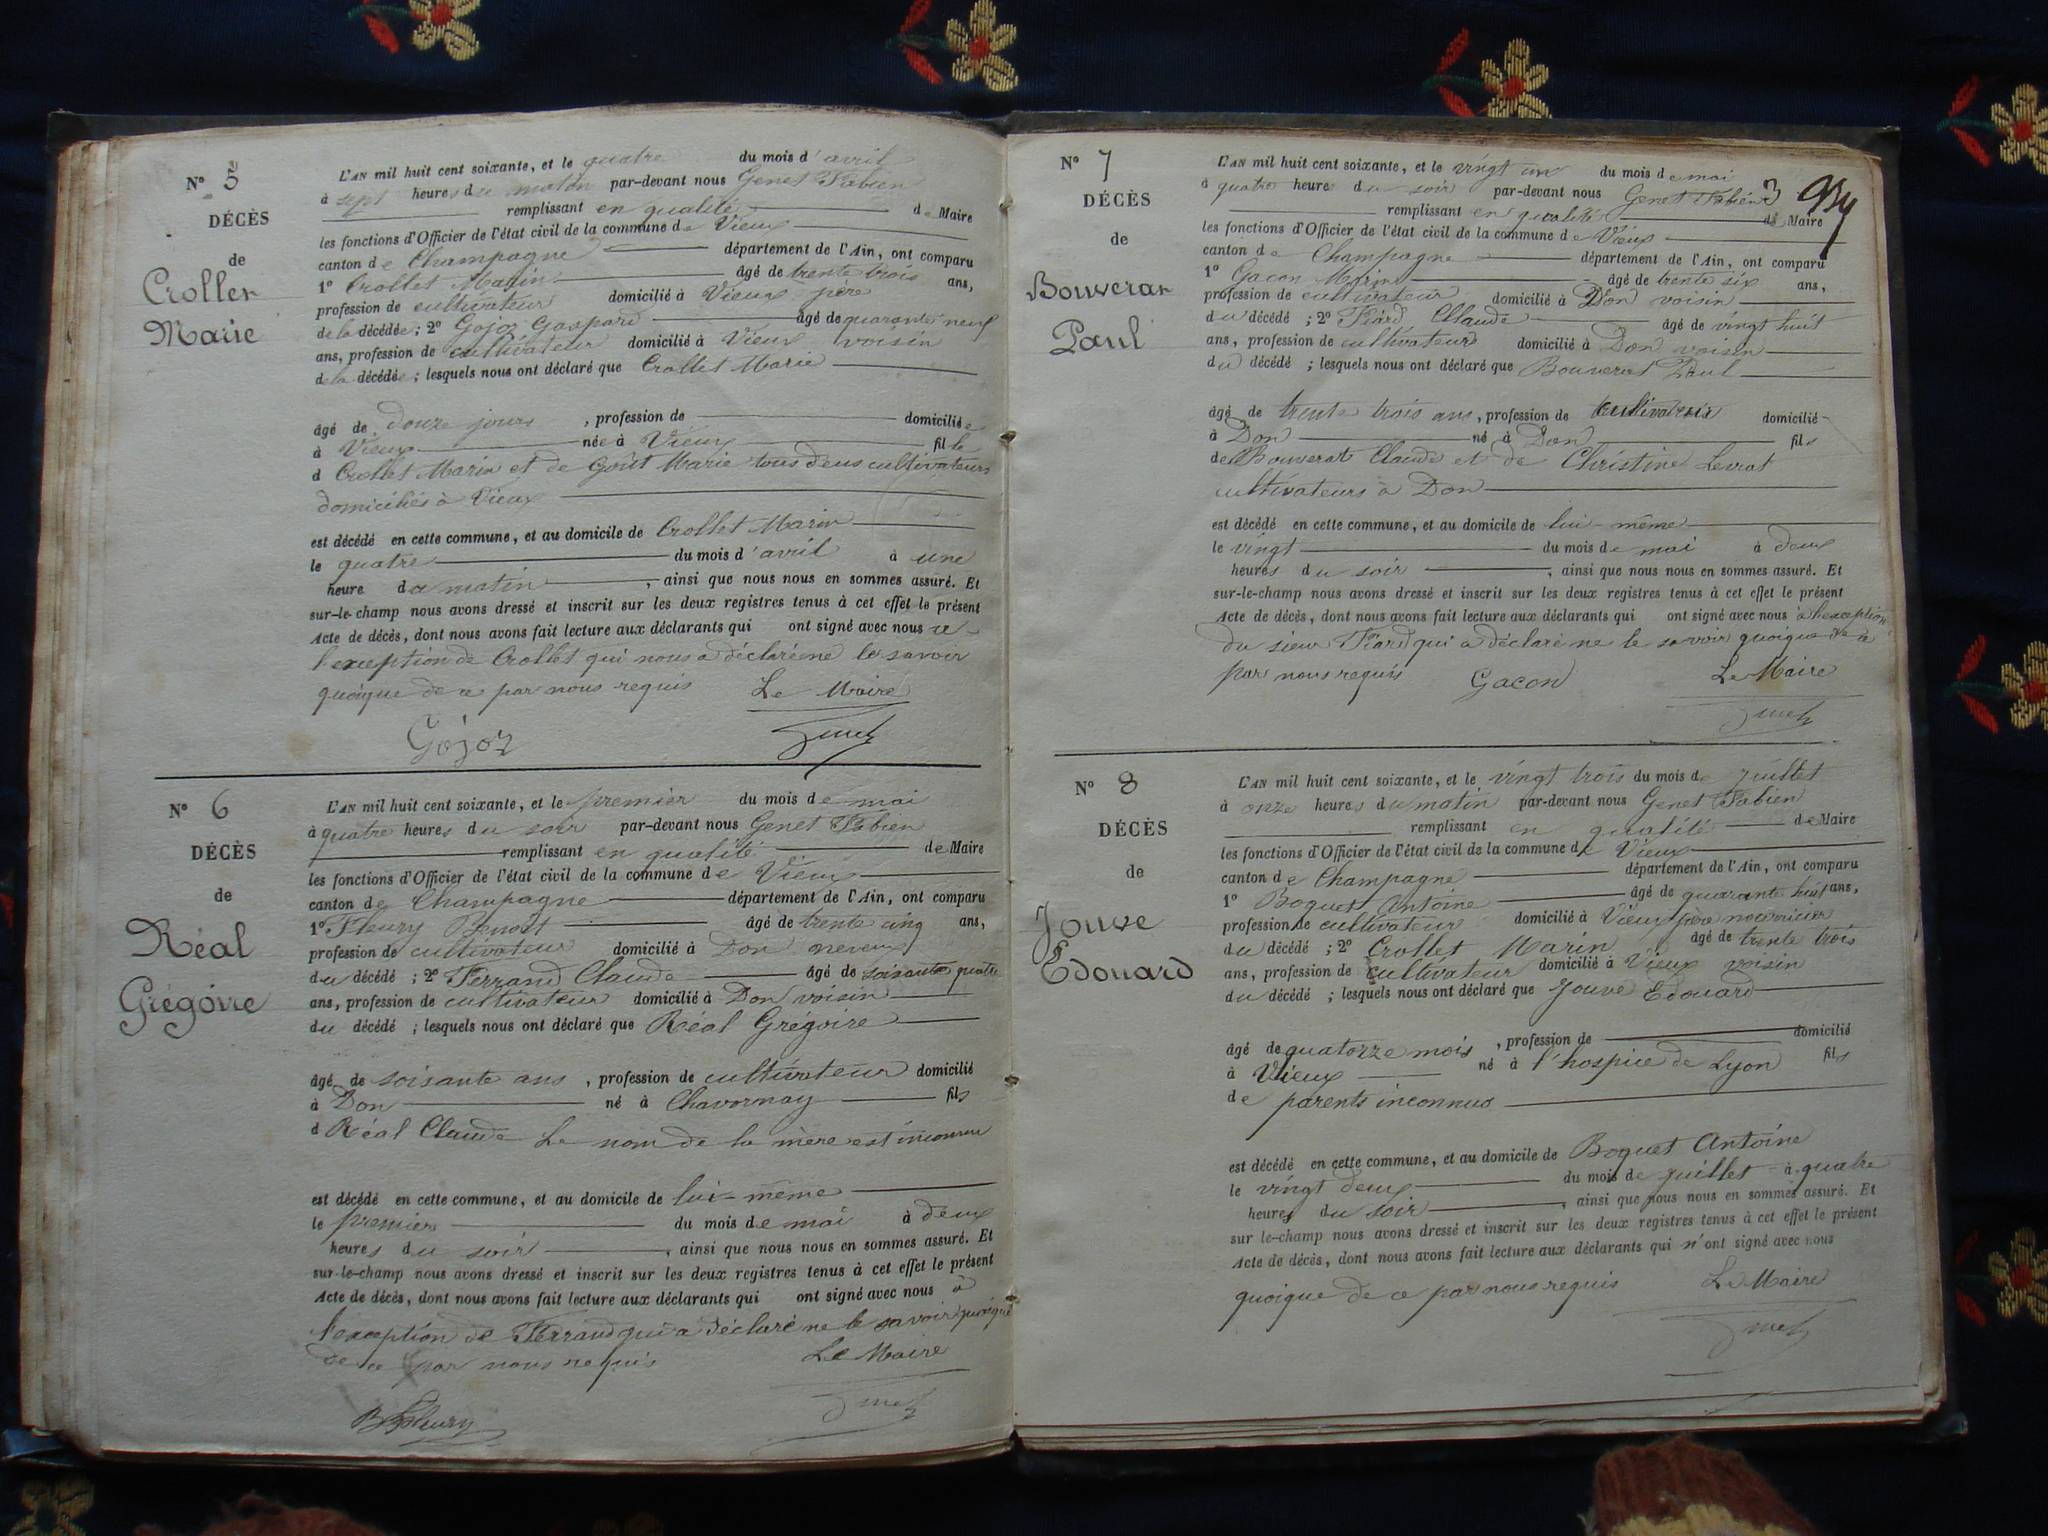 N° 5
DÉCÈS
de
Crollet
Marie
L'AN mil huit cent soixante, et le quatre du mois d'avril
à sept heures du matin par-devant nous Genet Fabien
remplissant en qualité de Maire
les fonctions d'Officier de l'état civil de la commune de Vieux
canton de Champagne département de l'Ain, ont comparu
1° Crollet Marin âgé de trente trois ans,
profession de cultivateur domicilié à Vieux père
de la décédée ; 2° Gojoz Gaspard âgé de quarante neuf
ans, profession de cultivateur domicilié à Vieux voisin
de la décédée ; lesquels nous ont déclaré que Crollet Marie
âgé de douze jours , profession de domiciliée
à Vieux née à Vieux fille
d Crollet Marin et de Goût Marie tous deux cultivateurs
domiciliés à Vieux
est décédé en cette commune, et au domicile de Crollet Marin
le quatre du mois d'avril à une
heure du matin , ainsi que nous nous en sommes assuré. Et
sur-le-champ nous avons dressé et inscrit sur les deux registres tenus à cet effet le présent
Acte de décès, dont nous avons fait lecture aux déclarants qui ont signé avec nous à
l'exception de Crollet qui nous a déclaré ne le savoir
quoique de ce par nous requis Le Maire
Gojoz Genet
N° 6
DÉCÈS
de
Réal
Grégoire
L'AN mil huit cent soixante, et le premier du mois de mai
à quatre heures du soir par-devant nous Genet Fabien
remplissant en qualité de Maire
les fonctions d'Officier de l'état civil de la commune de Vieux
canton de Champagne département de l'Ain, ont comparu
1° Fleury Benoit âgé de trente cinq ans,
profession de cultivateur domicilié à Don neveux
du décédé ; 2° Ferrand Claude âgé de soisante quatre
ans, profession de cultivateur domicilié à Don voisin
du décédé ; lesquels nous ont déclaré que Réal Grégoire
âgé de soisante ans , profession de cultivateur domicilié
à Don né à Chavornay fils
d Réal Claude Le nom de la mère est inconnu
est décédé en cette commune, et au domicile de lui-même
le premier du mois de mai à deux
heures du soir , ainsi que nous nous en sommes assuré. Et
sur-le-champ nous avons dressé et inscrit sur les deux registres tenus à cet effet le présent
Acte de décès, dont nous avons fait lecture aux déclarants qui ont signé avec nous à
l'exception de Ferrand qui a déclaré ne le savoir quoique
de ce par nous requis Le Maire
Genet
B Fleury
N° 7
DÉCÈS
de
Bouverat
Paul
L'AN mil huit cent soixante, et le vingt un du mois de mai
à quatre heures du soir par-devant nous Genet Fabien 3
remplissant en qualité de Maire
les fonctions d'Officier de l'état civil de la commune de Vieux
canton de Champagne département de l'Ain, ont comparu
1° Gacon Marin âgé de trente six ans,
profession de cultivateur domicilié à Don voisin
du décédé ; 2° Fiard Claude âgé de vingt huit
ans, profession de cultivateur domicilié à Don voisin
du décédé ; lesquels nous ont déclaré que Bouverat Paul
âgé de trente trois ans, profession de cultivateur domicilié
à Don né à Don fils
de Bouverat Claude et de Christine Levrat
cultivateurs à Don
est décédé en cette commune, et au domicile de lui-même
le vingt du mois de mai à deux
heures du soir , ainsi que nous nous en sommes assuré. Et
sur-le-champ nous avons dressé et inscrit sur les deux registres tenus à cet effet le présent
Acte de décès, dont nous avons fait lecture aux déclarants qui ont signé avec nous à l'exception
du sieur Fiard qui a déclaré ne le savoir quoique de ce
par nous requis Gacon Le Maire
Genet
N° 8
DÉCÈS
de
Jouve
Edouard
L'AN mil huit cent soixante, et le vingt trois du mois de juillet
à onze heures du matin par-devant nous Genet Fabien
remplissant en qualité de Maire
les fonctions d'Officier de l'état civil de la commune de Vieux
canton de Champagne département de l'Ain, ont comparu
1° Boquet Antoine âgé de quarante huit ans,
profession de cultivateur domicilié à Vieux père nourricier
du décédé ; 2° Crollet Marin âgé de trente trois
ans, profession de cultivateur domicilié à Vieux voisin
du décédé ; lesquels nous ont déclaré que Jouve Edouard
âgé de quatorze mois , profession de domicilié
à Vieux né à l'hospice de Lyon fils
de parents inconnus
est décédé en cette commune, et au domicile de Boquet Antoine
le vingt deux du mois de juillet à quatre
heures du soir , ainsi que nous nous en sommes assuré. Et
sur le-champ nous avons dressé et inscrit sur les deux registres tenus à cet effet le présent
Acte de décès, dont nous avons fait lecture aux déclarants qui n'ont signé avec nous
quoique de ce par nous requis Le Maire
Genet